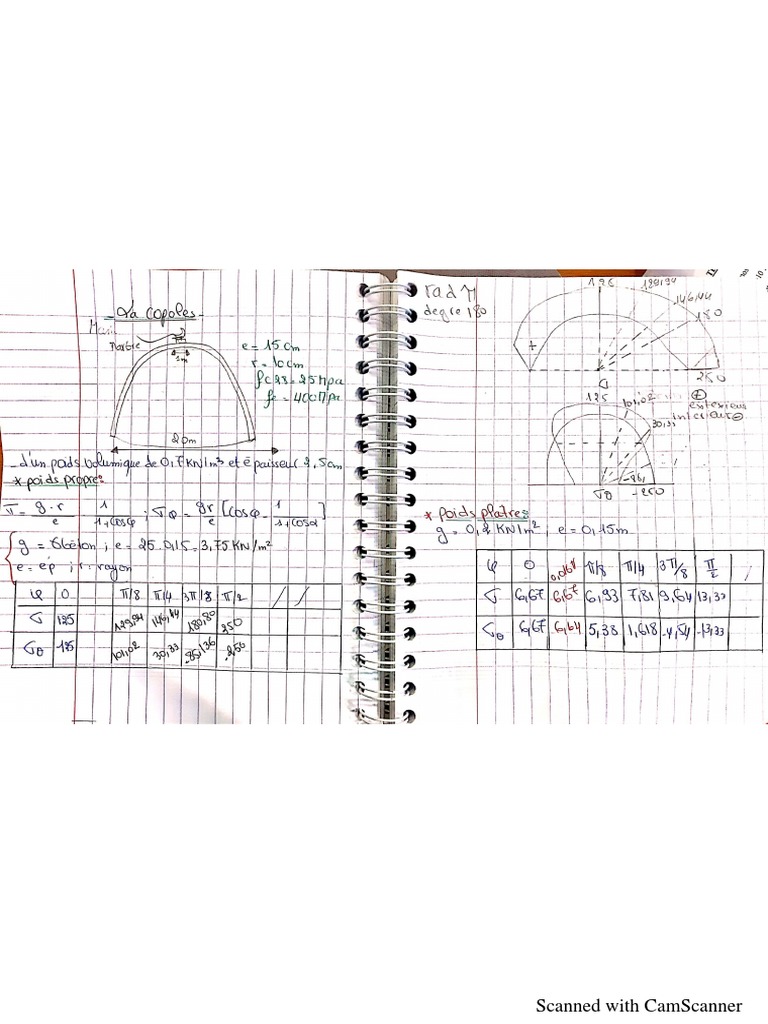 La Copoles
Marbre
1m
20m
e = 15 cm
r = 10cm
fc28 = 25 Mpa
fe = 400 Mpa
d'un poids volumique de 0,7 KN/m³ et épaisseur 2,5cm
* poids propre:
σ = g.r/e 1/1+cosφ ; σθ = gr/e [cosφ - 1/1+cosα]
g = γbéton ; e = 25.0,15 = 3,75 KN/m²
e = ép ; r = rayon
φ 0 π/8 π/4 3π/8 π/2
σ 125 129,94 146,44 180,80 250
σθ 125 101,02 30,33 -85,136 -250
rad π
degre 180
125 146,44 180
+
σ 250
125 101,02 ⊕
exterieur
30,33 interieur ⊖
-85,1
σθ -250
* poids platres
g = 0,2 KN/m², e = 0,15m
φ 0 π/8 π/4 3π/8 π/2
σ 6,67 6,67 6,93 7,81 9,64 13,33
σθ 6,67 6,64 5,38 1,618 -4,54 -13,33
Scanned with CamScanner